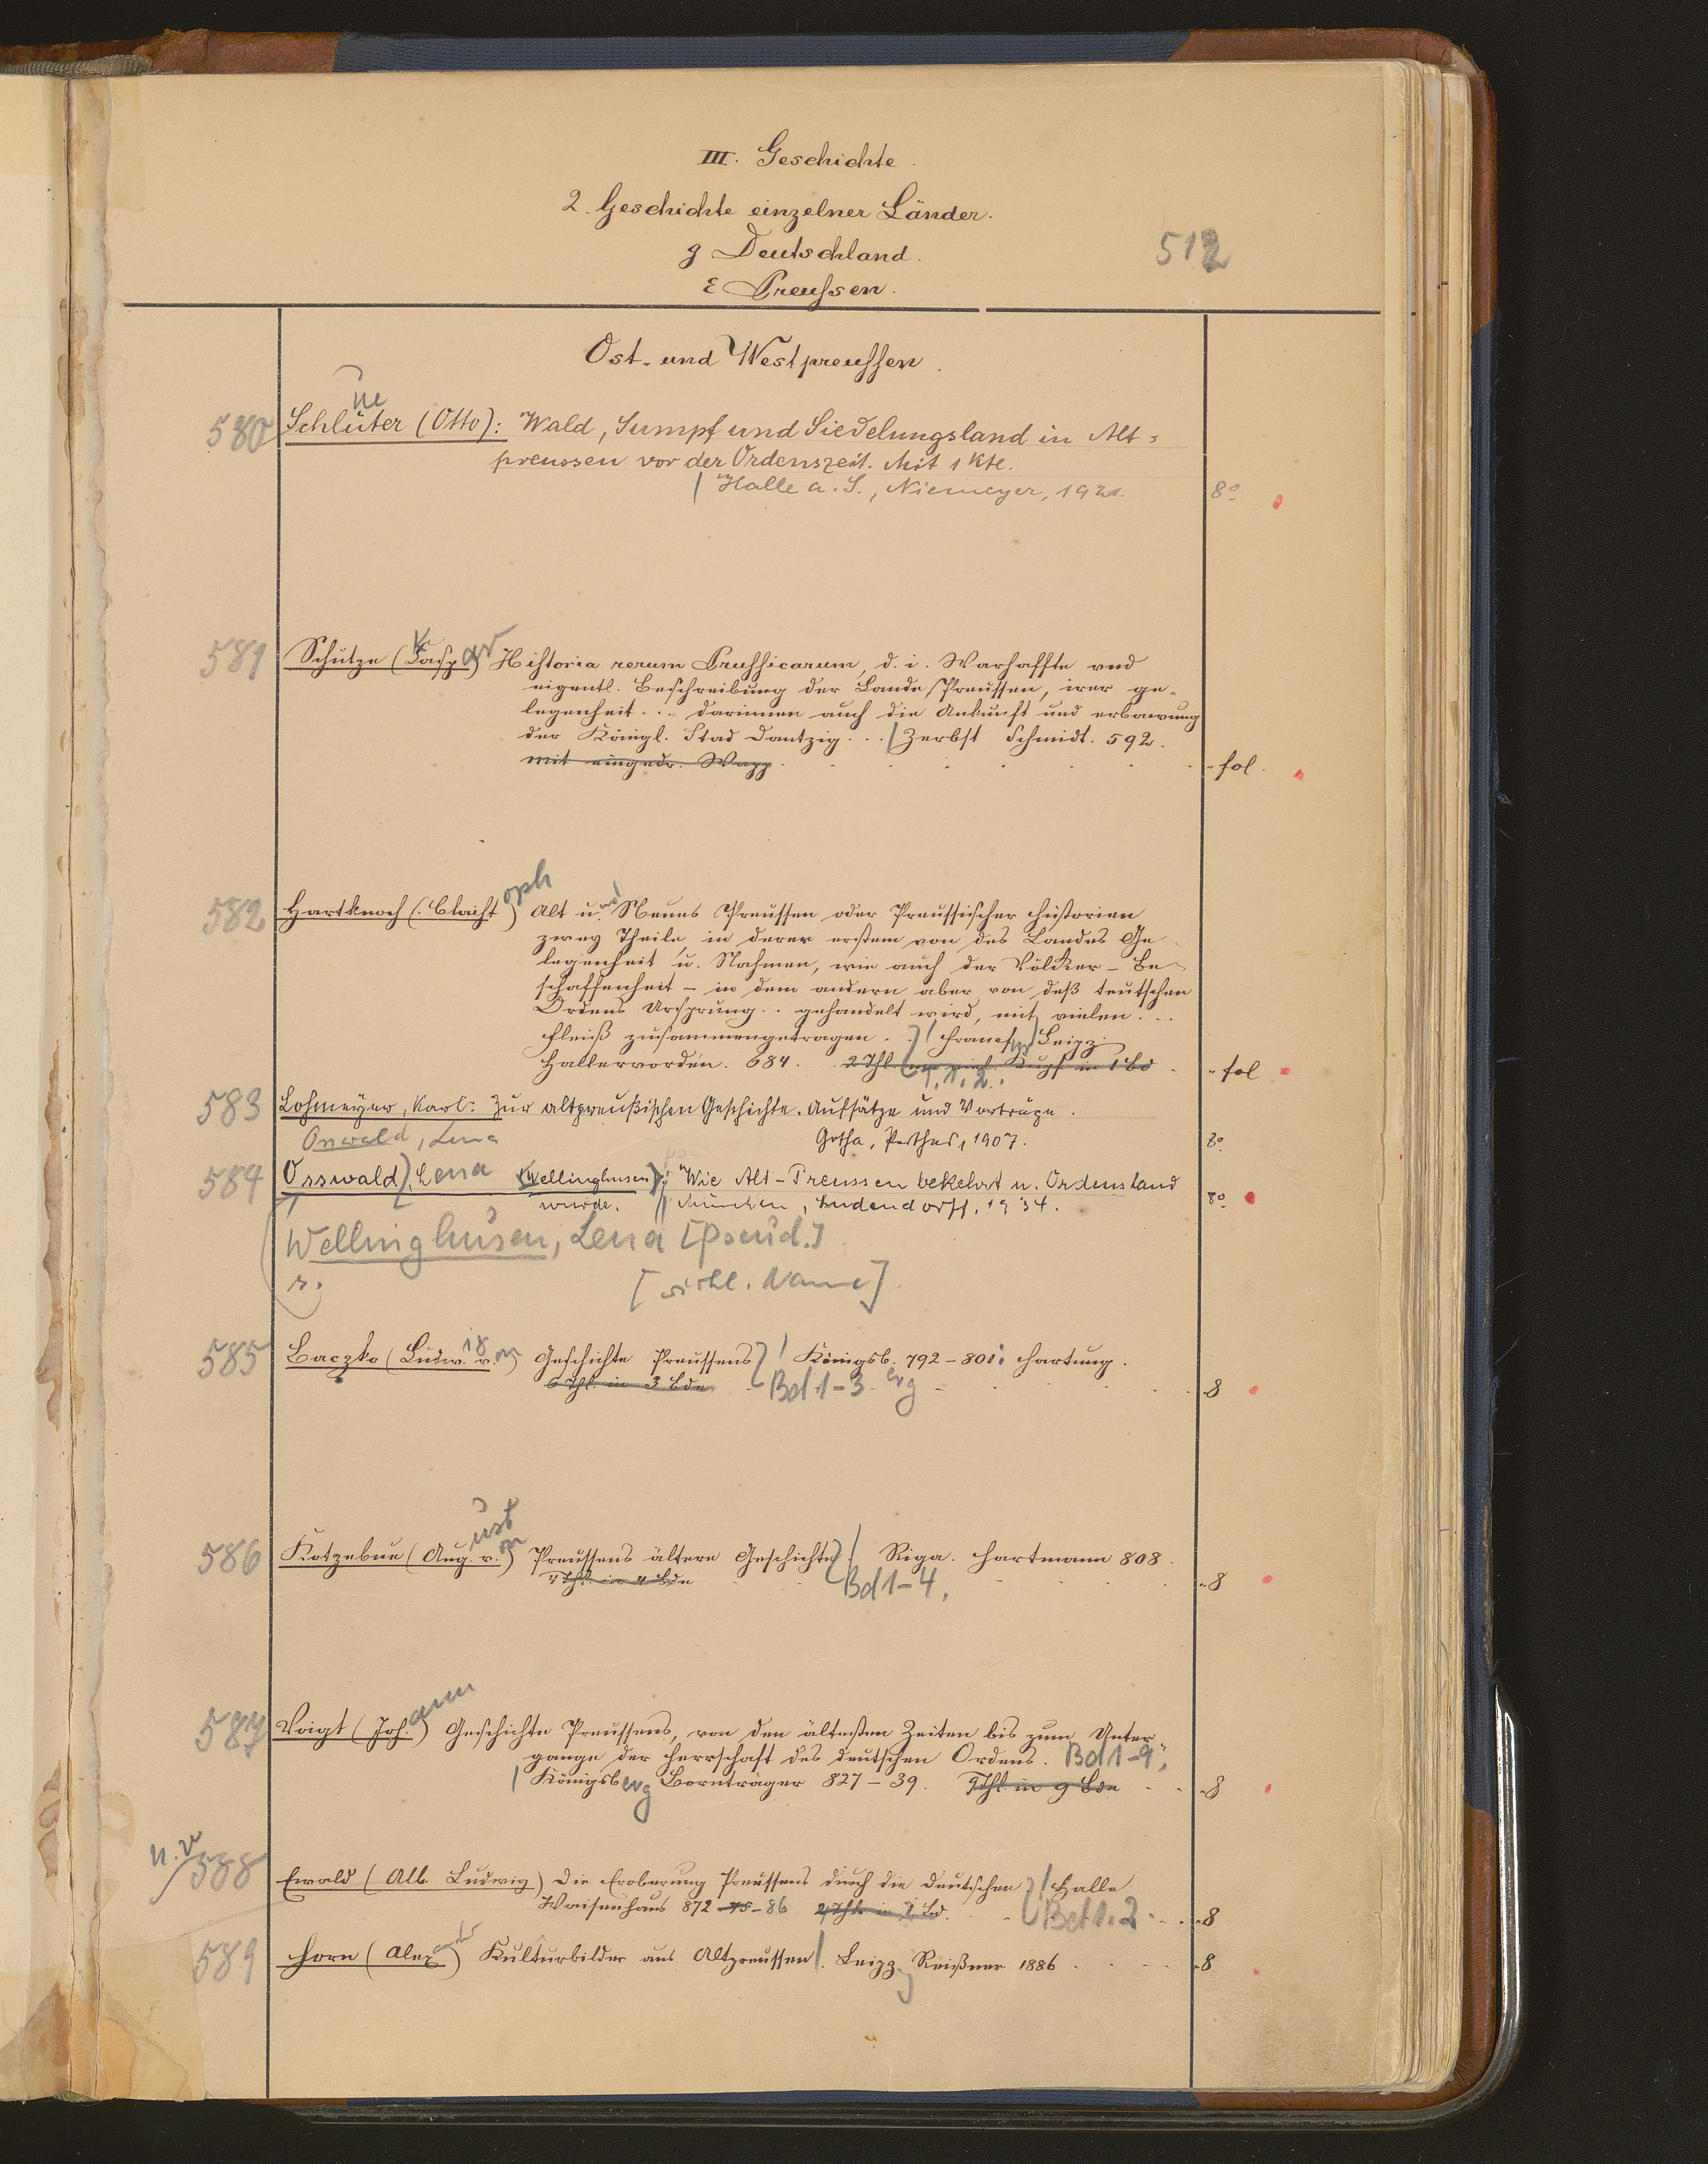 III. Geschichte.
2. Geschichte einzelner Länder.
g Deutschland.
512
ε Preußen.
Ost- und Westpreussen.
580 Schlüter (Otto): Wald, Sumpf und Siedelungsland in Alt=
preussen vor der Ordenszeit. Mit 1 Kte.
| Halle a. S., Niemeyer, 1921. 8°
581 Schütze (Kaspar) Historia rerum Prussicarum, d. i. Warhaffte und
eigentl. Beschreibung der Lande Preussen, irer ge-
legenheit ... darinnen auch die Ankunft und erbawung
der Königl. Stad Dantzig ... | Zerbst Schmidt. 592.
mit eingedr. Wapp. fol.
582 Hartknoch (Christoph) Alt und Neues Preussen oder Preussischer Historien
zwey Theile, in derer erstem von des Landes Ge-
legenheit u. Nahmen, wie auch der Völcker - Be-
schaffenheit - in dem andern aber von deß teutschen
Ordens Ursprung .. gehandelt wird, mit vielen ...
Fleiß zusammengetragen .. | Francf. Leipz.
Hallervorden. 684. 2 Thl. m. viel. Kupf in 1 Bd fol
T. 1. 2.
583 Lohmeyer, Karl: Zur altpreußischen Geschichte. Aufsätze und Vorträge.
Osswald, Lena Gotha, Perthes, 1907. 8°
584 Osswald, Lena (Wellinghusen): Wie Alt-Preussen bekehrt u. Ordensland
wurde. || München, Ludendorff, 1934. 8°
Wellinghusen, Lena [Pseud.]
s. [wirkl. Name]
585 Baczko (Ludw. v.on) Geschichte Preussens | Königsb. 792-801: Hartung.
6 Thl. in 3 Bde Bd 1-3. erg 8
586 Kotzebue (August v.on) Preussens ältere Geschichte. | Riga. Hartmann 808.
4 Thl. in 4 Bde Bd 1-4. 8
587 Voigt (Johann) Geschichte Preussens, von den ältesten Zeiten bis zum Unter-
gange der Herrschaft des deutschen Ordens. Bd 1-9.
| Königsberg Bornträger 827-39. 9 Thl. in 9 Bde 8
588 Ewald (Alb. Ludwig) Die Eroberung Preussens durch die Deutschen | Halle
Waisenhaus 872-75-86 2 Thle in 1 Bd. Bd 1. 2. 8
589 Horn (Alexander) Kulturbilder aus Altpreussen |. Leipz. Reißner 1886 8